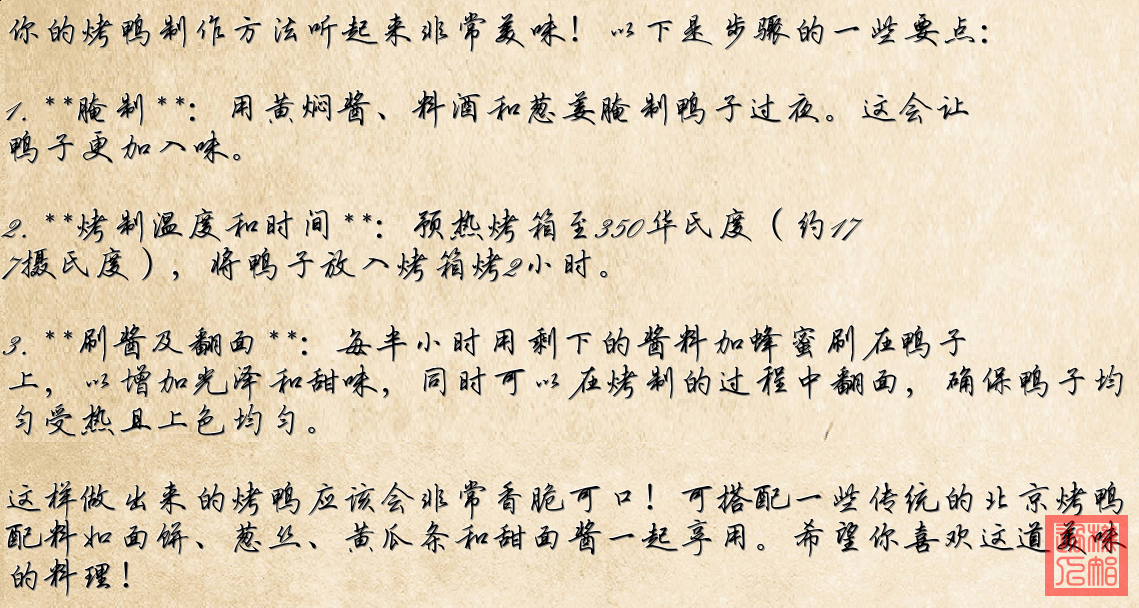 你的烤鸭制作方法听起来非常美味！以下是步骤的一些要点：
1. **腌制**：用黄焖酱、料酒和葱姜腌制鸭子过夜。这会让
鸭子更加入味。
2. **烤制温度和时间**：预热烤箱至350华氏度（约17
7摄氏度），将鸭子放入烤箱烤2小时。
3. **刷酱及翻面**：每半小时用剩下的酱料加蜂蜜刷在鸭子
上，以增加光泽和甜味，同时可以在烤制的过程中翻面，确保鸭子均
匀受热且上色均匀。
这样做出来的烤鸭应该会非常香脆可口！可搭配一些传统的北京烤鸭
配料如面饼、葱丝、黄瓜条和甜面酱一起享用。希望你喜欢这道美味
的料理！